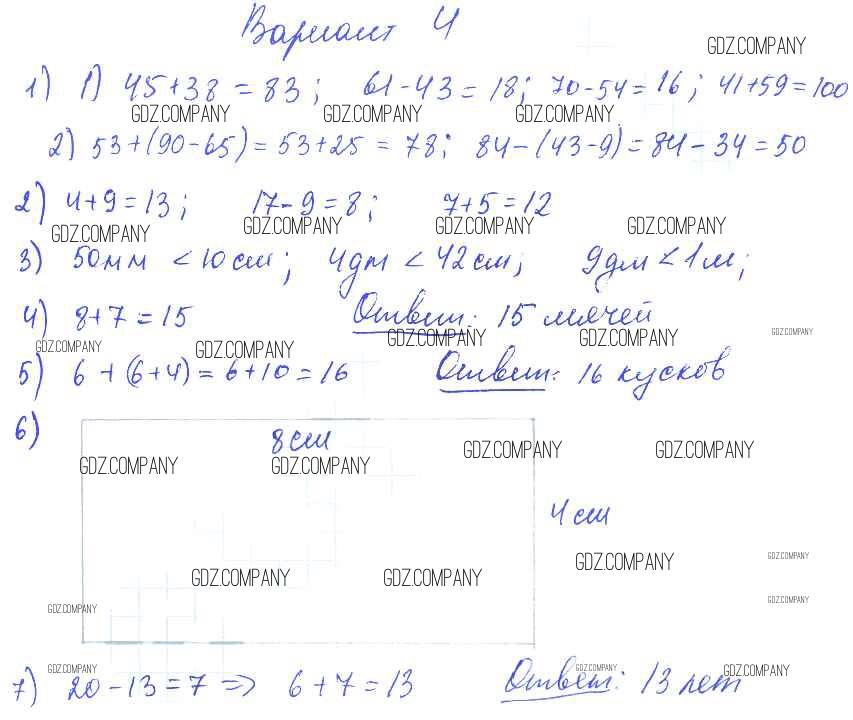 Вариант 4
GDZ.COMPANY
1) 1) 45+38 = 83; 61-43 = 18; 70-54 = 16; 41+59 = 100
GDZ.COMPANY GDZ.COMPANY GDZ.COMPANY
2) 53+(90-65) = 53+25 = 78; 84-(43-9) = 84-34 = 50
2) 4+9 = 13; 17-9 = 8; 7+5 = 12
GDZ.COMPANY GDZ.COMPANY GDZ.COMPANY GDZ.COMPANY
3) 50мм < 10см; 4дм < 42см; 9дм < 1м;
4) 8+7 = 15 Ответ: 15 мячей
GDZ.COMPANY GDZ.COMPANY GDZ.COMPANY GDZ.COMPANY GDZ.COMPANY
5) 6 + (6+4) = 6+10 = 16 Ответ: 16 кусков
6)
8см
GDZ.COMPANY GDZ.COMPANY
GDZ.COMPANY GDZ.COMPANY
4см
GDZ.COMPANY GDZ.COMPANY
GDZ.COMPANY GDZ.COMPANY
GDZ.COMPANY GDZ.COMPANY
GDZ.COMPANY GDZ.COMPANY GDZ.COMPANY
7) 20-13 = 7 => 6+7 = 13 Ответ: 13 лет